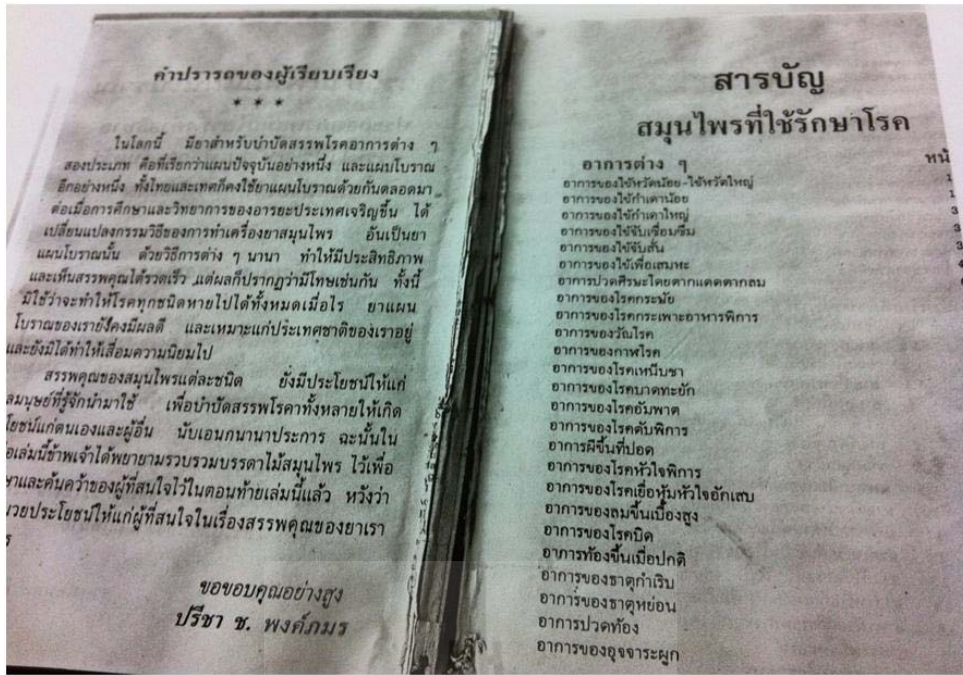 คำปรารถของผู้เรียบเรียง
* * *
ในโลกนี้ มียาสำหรับบำบัดสรรพโรคอาการต่าง ๆ
สองประเภท คือที่เรียกว่าแผนปัจจุบันอย่างหนึ่ง และแผนโบราณ
อีกอย่างหนึ่ง ทั้งไทยและเทศก็คงใช้ยาแผนโบราณด้วยกันตลอดมา
ต่อเมื่อการศึกษาและวิทยาการของอารยะประเทศเจริญขึ้น ได้
เปลี่ยนแปลงกรรมวิธีของการทำเครื่องยาสมุนไพร อันเป็นยา
แผนโบราณนั้น ด้วยวิธีการต่าง ๆ นานา ทำให้มีประสิทธิภาพ
และเห็นสรรพคุณได้รวดเร็ว แต่ผลก็ปรากฏว่ามีโทษเช่นกัน ทั้งนี้
มิใช่ว่าจะทำให้โรคทุกชนิดหายไปได้ทั้งหมดเมื่อไร ยาแผน
โบราณของเรายังคงมีผลดี และเหมาะแก่ประเทศชาติของเราอยู่
และยังมิได้ทำให้เสื่อมความนิยมไป
สรรพคุณของสมุนไพรแต่ละชนิด ยังมีประโยชน์ให้แก่
ลมนุษย์ที่รู้จักนำมาใช้ เพื่อบำบัดสรรพโรคาทั้งหลายให้เกิด
โยชน์แก่ตนเองและผู้อื่น นับเอนกนานาประการ ฉะนั้นใน
อเล่มนี้ข้าพเจ้าได้พยายามรวบรวมบรรดาไม้สมุนไพร ไว้เพื่อ
ษาและค้นคว้าของผู้ที่สนใจไว้ในตอนท้ายเล่มนี้แล้ว หวังว่า
นวยประโยชน์ให้แก่ผู้ที่สนใจในเรื่องสรรพคุณของยาเรา
ร
ขอขอบคุณอย่างสูง
ปรีชา ช. พงค์ภมร
สารบัญ
สมุนไพรที่ใช้รักษาโรค
อาการต่าง ๆ หน้
อาการของไข้หวัดน้อย-ไข้หวัดใหญ่ 1
อาการของไข้กำเดาน้อย 1
อาการของไข้กำเดาใหญ่ 3
อาการของไข้จับเชื่อมซึม 3
อาการของไข้จับสั่น 3
อาการของไข้เพื่อเสมหะ 4
อาการปวดศีรษะโดยตากแดดตากลม
อาการของโรคกระษัย
อาการของโรคกระเพาะอาหารพิการ
อาการของวัณโรค
อาการของกาฬโรค
อาการของโรคเหน็บชา
อาการของโรคบาดทะยัก
อาการของโรคอัมพาต
อาการของโรคตับพิการ
อาการฝีขึ้นที่ปอด
อาการของโรคหัวใจพิการ
อาการของโรคเยื่อหุ้มหัวใจอักเสบ
อาการของลมขึ้นเบื้องสูง
อาการของโรคบิด
อาการท้องขึ้นเมื่อปกติ
อาการของธาตุกำเริบ
อาการของธาตุหย่อน
อาการปวดท้อง
อาการของอุจจาระผูก